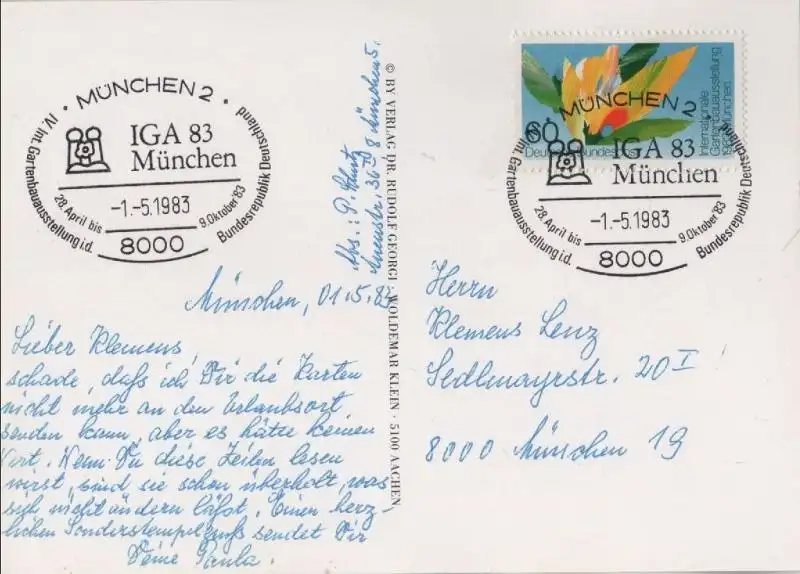 MÜNCHEN 2
IV. Int. Gartenbauausstellung i.d. Bundesrepublik Deutschland
IGA 83
München
-1.-5.1983
28. April bis 9. Oktober 83
8000
Abs.: P.
8 München 5
© BY VERLAG DR. RUDOLF GEORGI · WOLDEMAR KLEIN · 5100 AACHEN
München, 01.5.83
Lieber Klemens,
schade, daß ich Dir die Karten
nicht mehr an den Urlaubsort
senden kann, aber es hätte keinen
Wert. Wenn Du diese Zeilen lesen
wirst, sind sie schon überholt, was
sich nicht ändern läßt. Einen herz-
lichen Sonderstempelgruß sendet Dir
Deine Paula.
60
Deutsche Bundespost
Internationale
Gartenbauausstellung
München
MÜNCHEN 2
IV. Int. Gartenbauausstellung i.d. Bundesrepublik Deutschland
IGA 83
München
-1.-5.1983
28. April bis 9. Oktober 83
8000
Herrn
Klemens Lenz
Sedlmayrstr. 20 I
8000 München 19